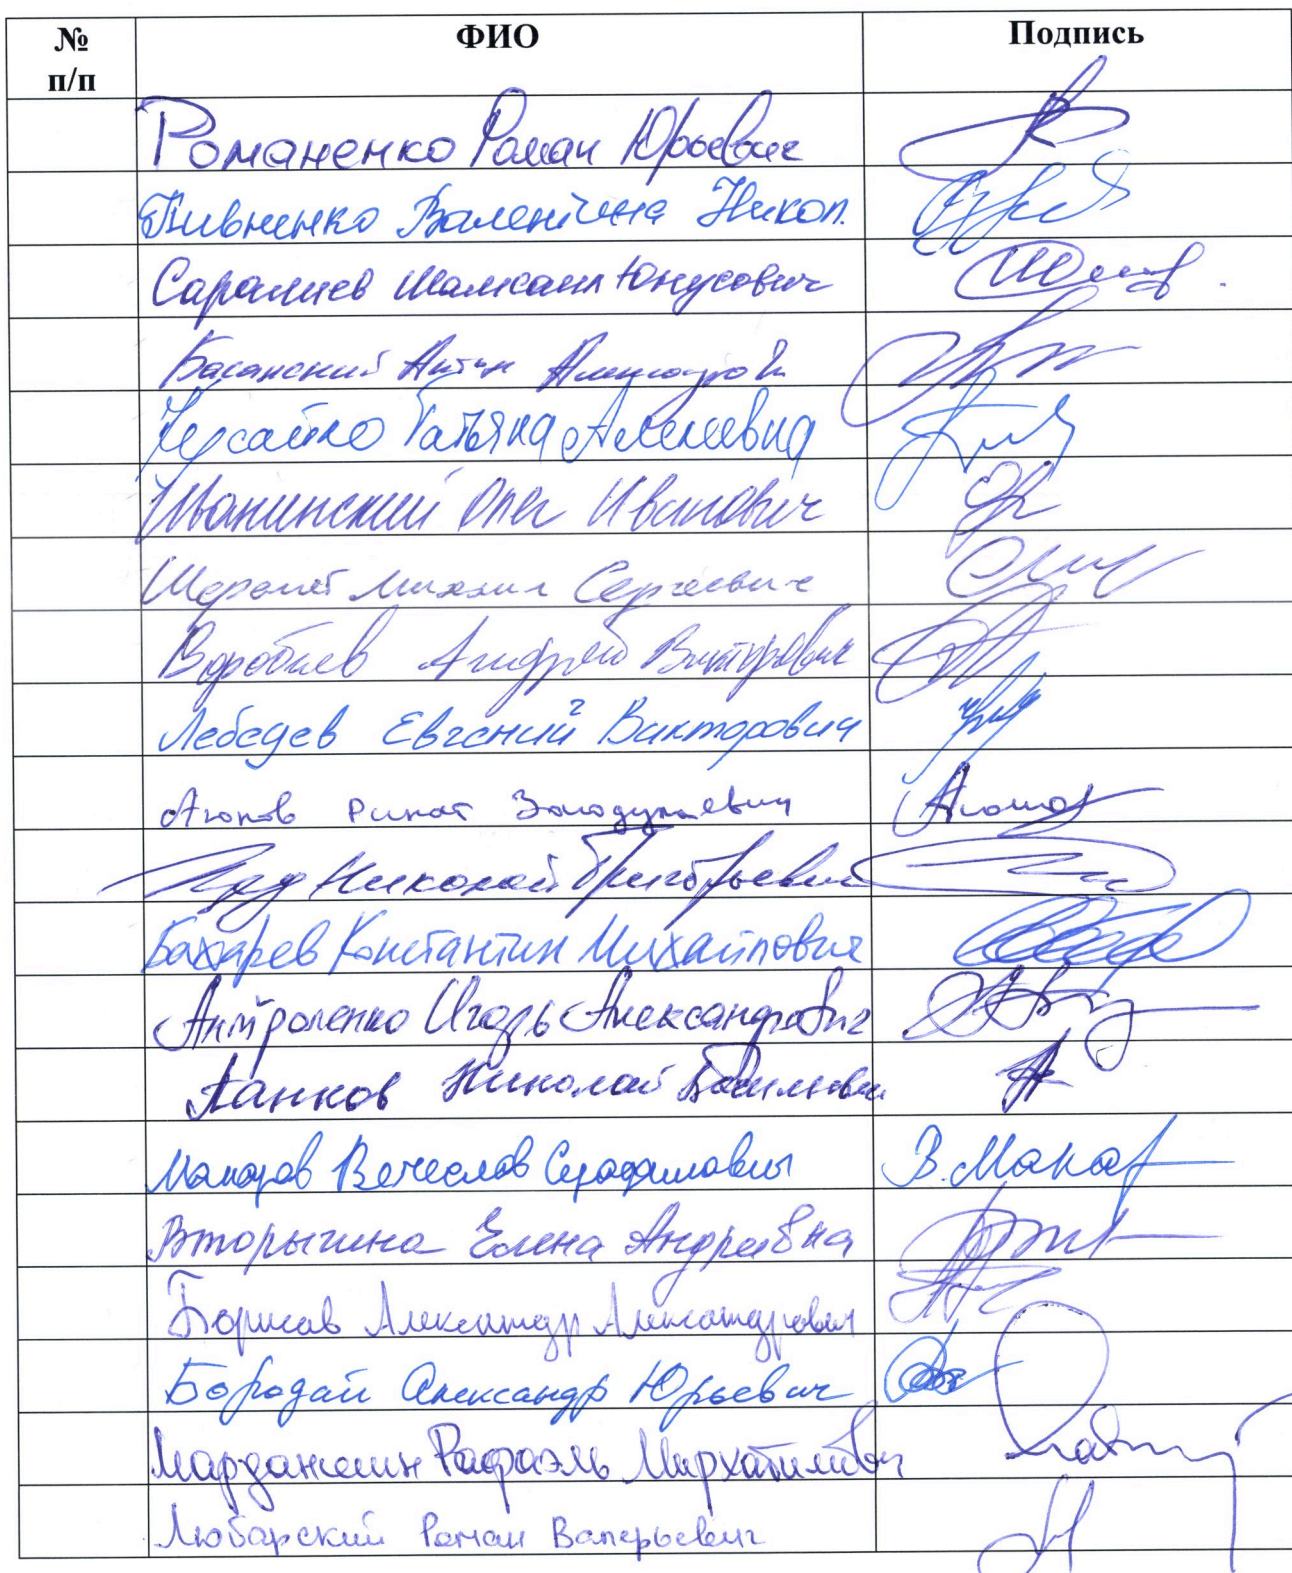 № ФИО Подпись
п/п
Романенко Роман Юрьевич
Пивненко Валентина Никол.
Саралиев Шамсаил Юнусович
Басанский Антон Александрович
Татьяна Алексеевна
Иванинский Олег Иванович
Шеремет Михаил Сергеевич
Воробьев Андрей Викторович
Лебедев Евгений Викторович
Аюпов Ринат Аюпов
Николай Григорьевич
Бахарев Константин Михайлович
Антропенко Игорь Александрович
Панков Николай Васильевич
Макаров Вечеслав Серафимович В. Макар
Вторыгина Елена Андреевна
Борисов Александр Александрович
Бородай Александр Юрьевич
Марданшин Рафаэль Мирхатимович
Любарский Роман Валерьевич